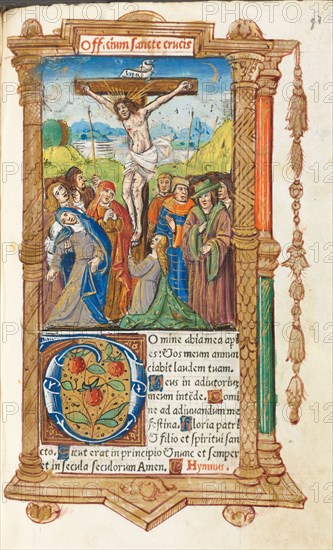 Officium sancte crucis
Domine labia mea ape
es: Et os meum annun
ciabit laudem tuam.
Deus in adiutoriũ
meum intẽde. Domi
ne ad adiuvandum me
festina. Gloria patri
et filio et spiritui san
cto. Sicut erat in principio et nunc et semper
et in secula seculorum Amen. Hymnus.